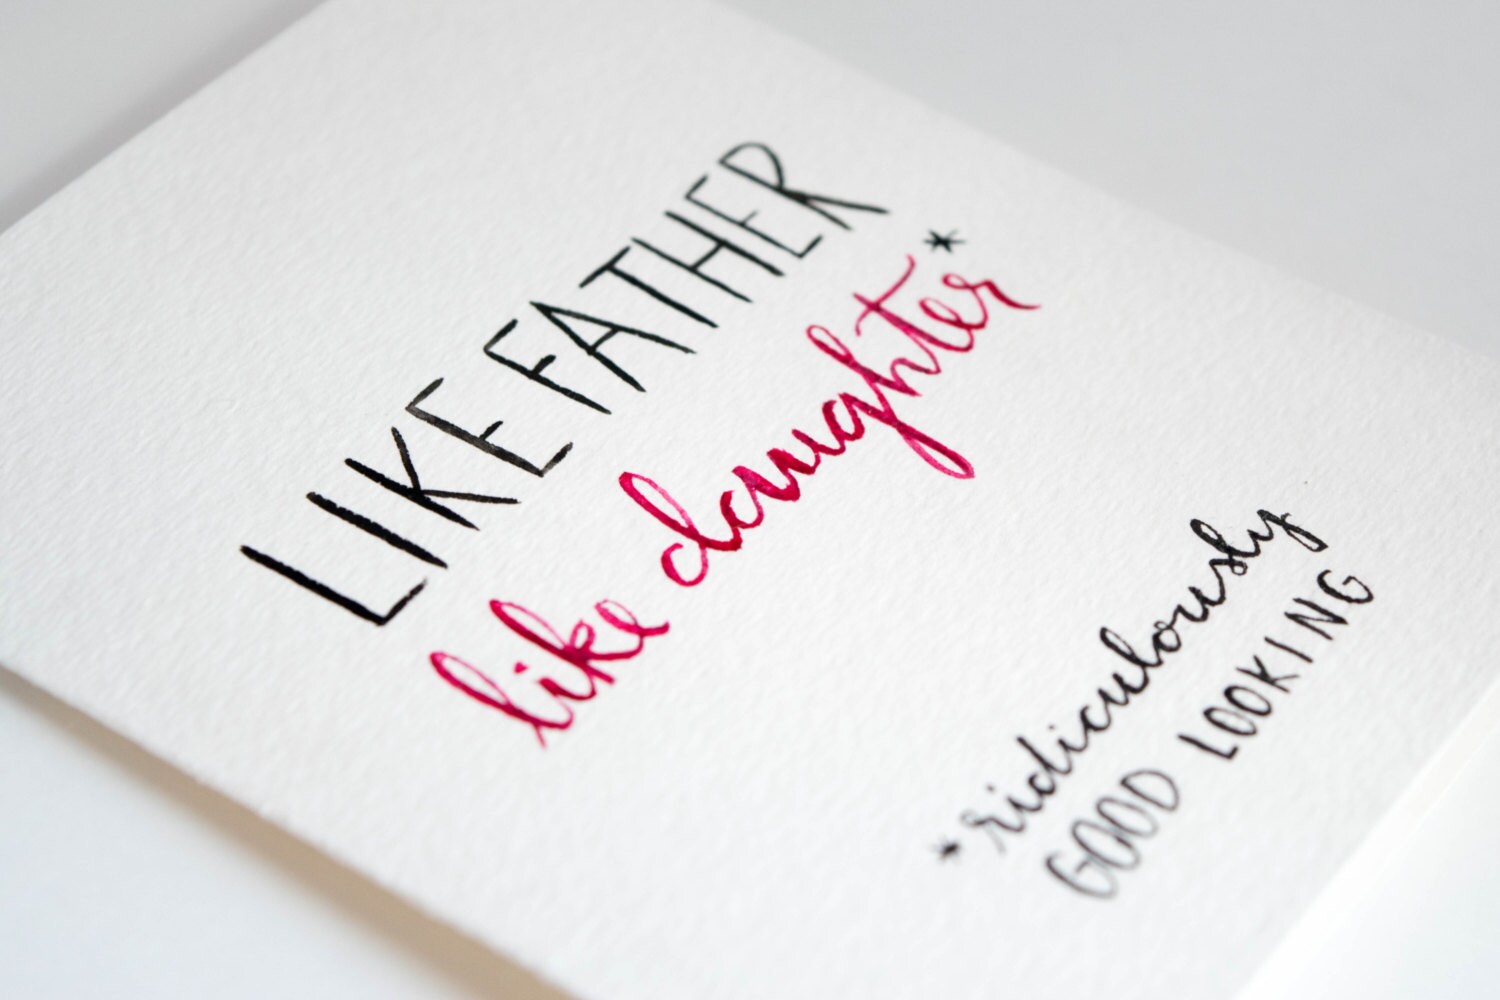 LIKE FATHER
like daughter*
*ridiculously
GOOD LOOKING